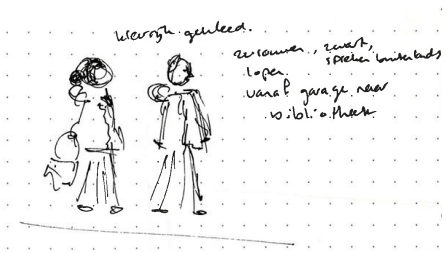 kleurrijk gekleed.
2 vrouwen, zwart,
spreken buitenlands
lopen.
vanaf garage naar
bibliotheek